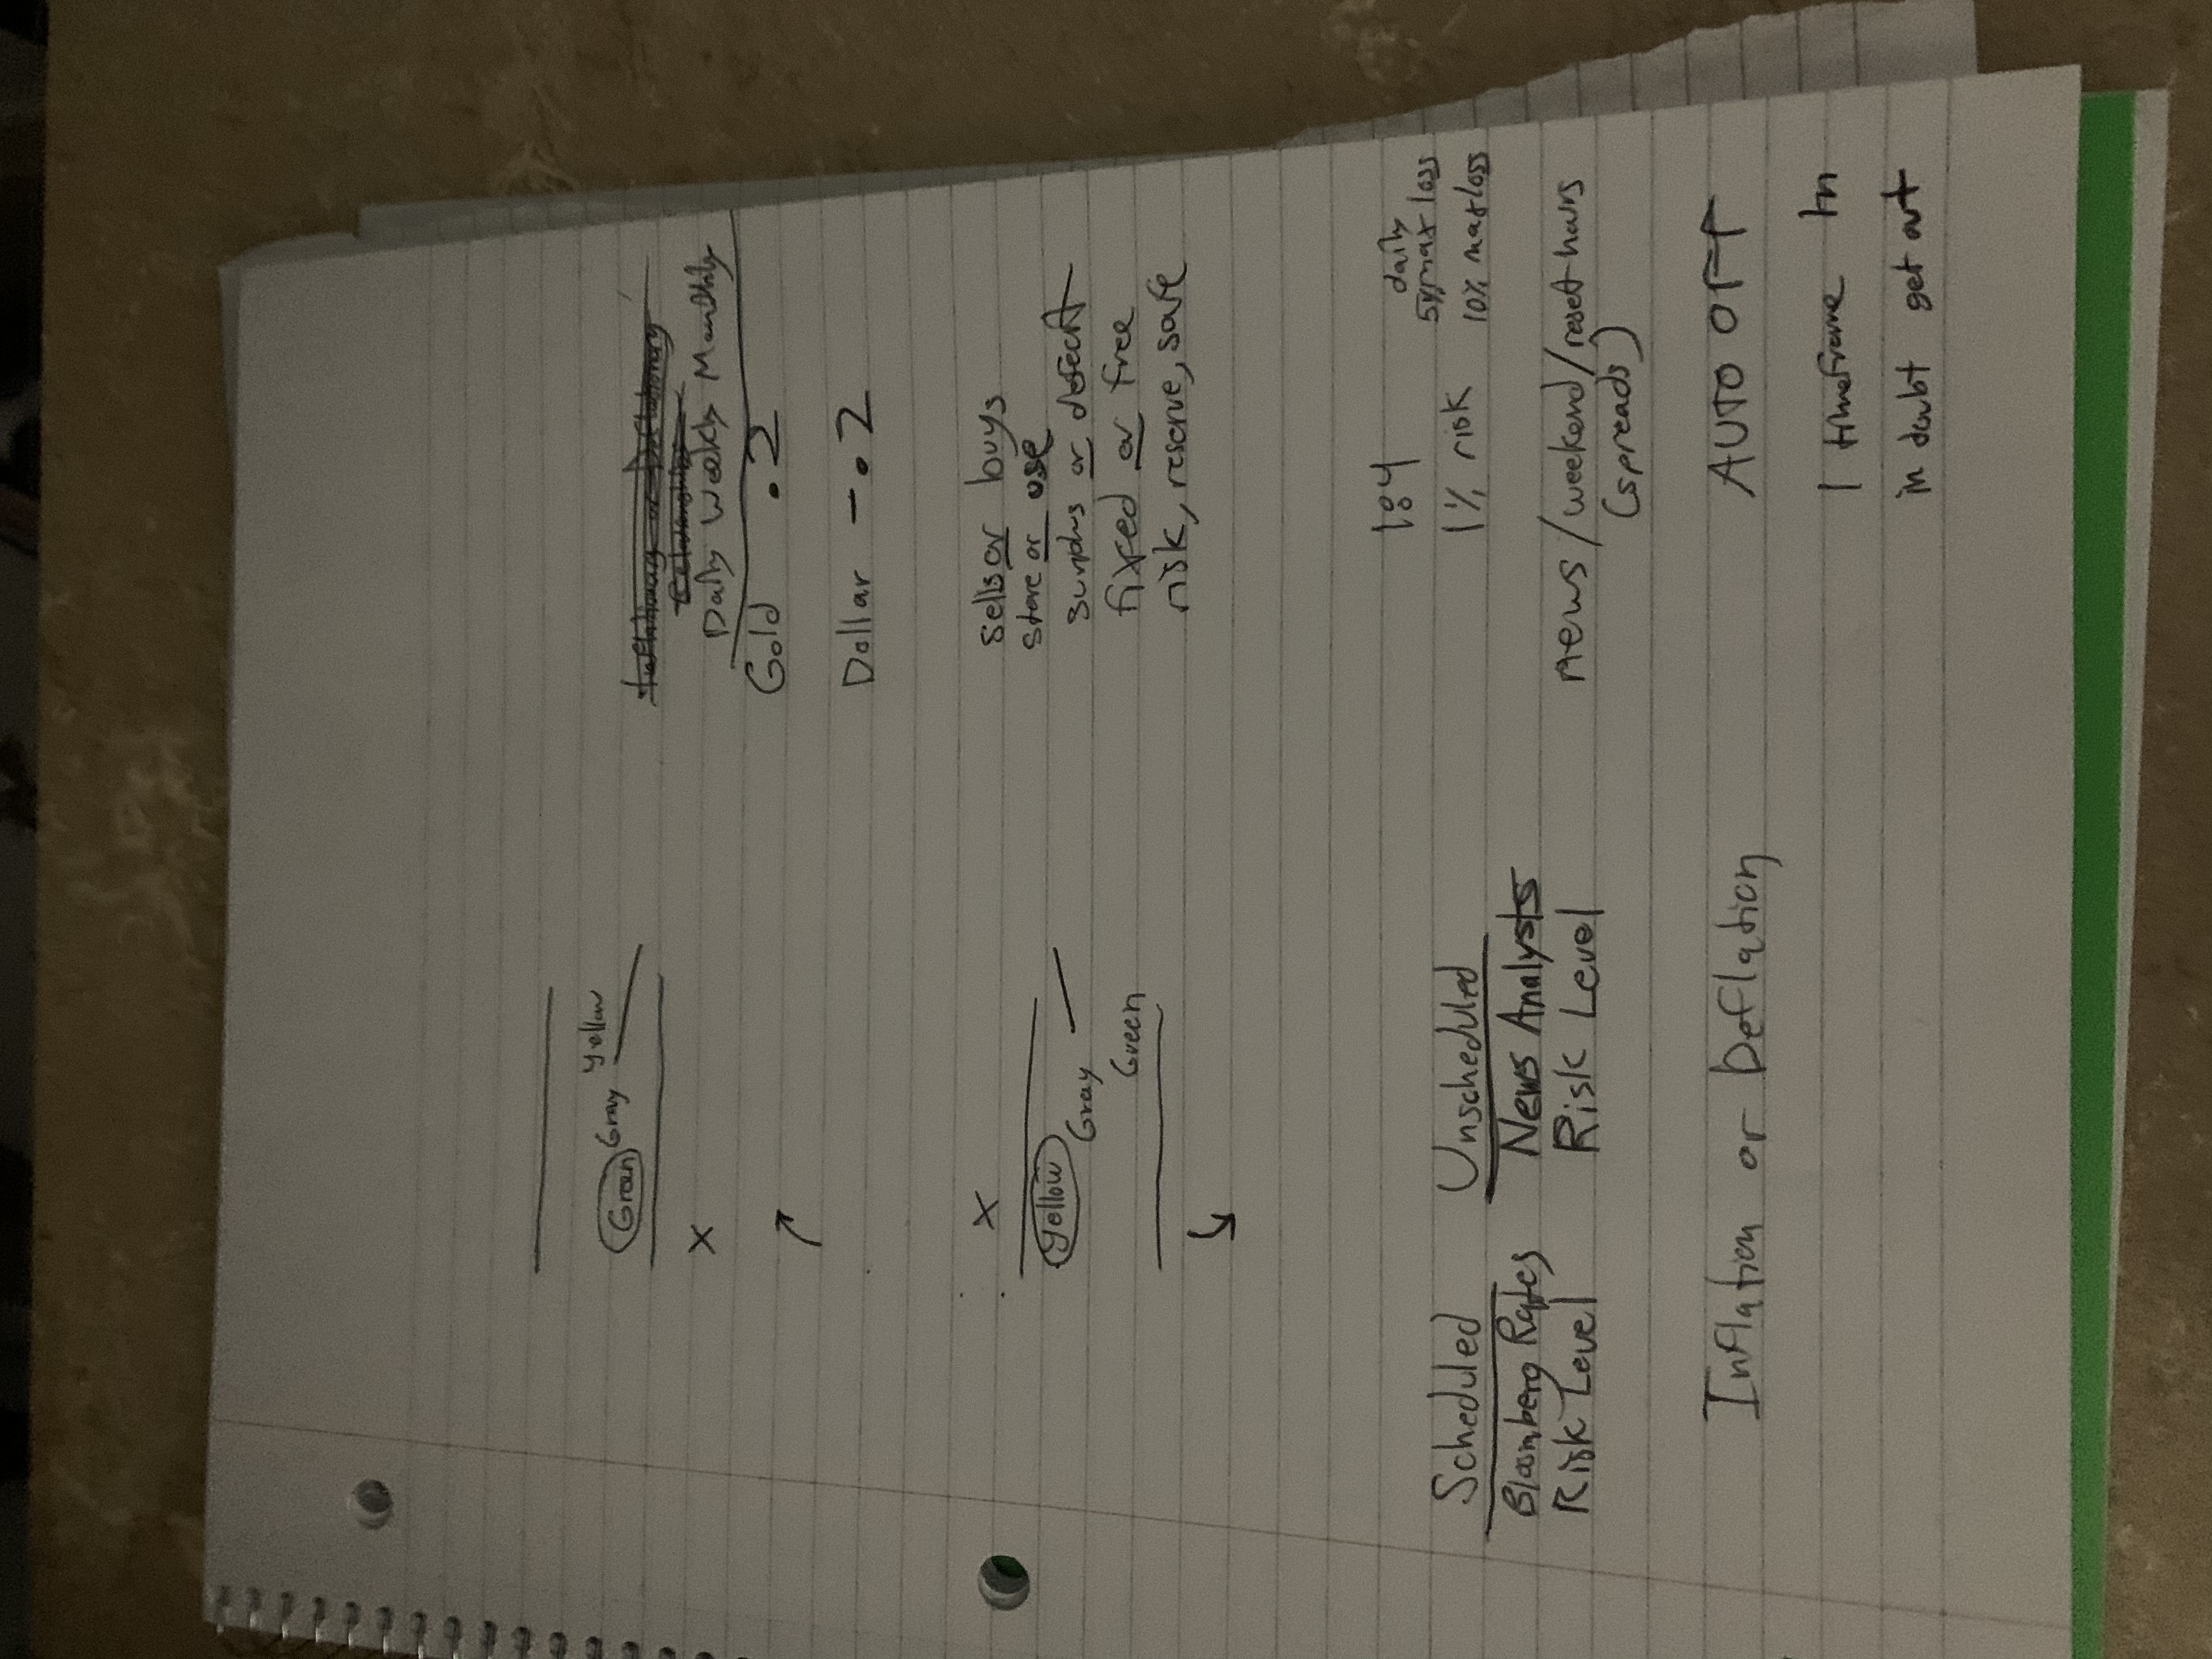 Yellow
Green Gray
X
Daily Weekly Monthly
Gold .2
Dollar -.2
X
Yellow
Gray
Green
sells or buys
store or use
surplus or defecit
fixed or free
risk, reserve, safe
1:4
daily
5% max loss
1% risk 10% max loss
Scheduled Unscheduled
Bloomberg Rates News Analysts
Risk Level Risk Level
news/weekend/reset hours
(spreads)
Inflation or Deflation
AUTO OFF
1 timeframe in
in doubt get out